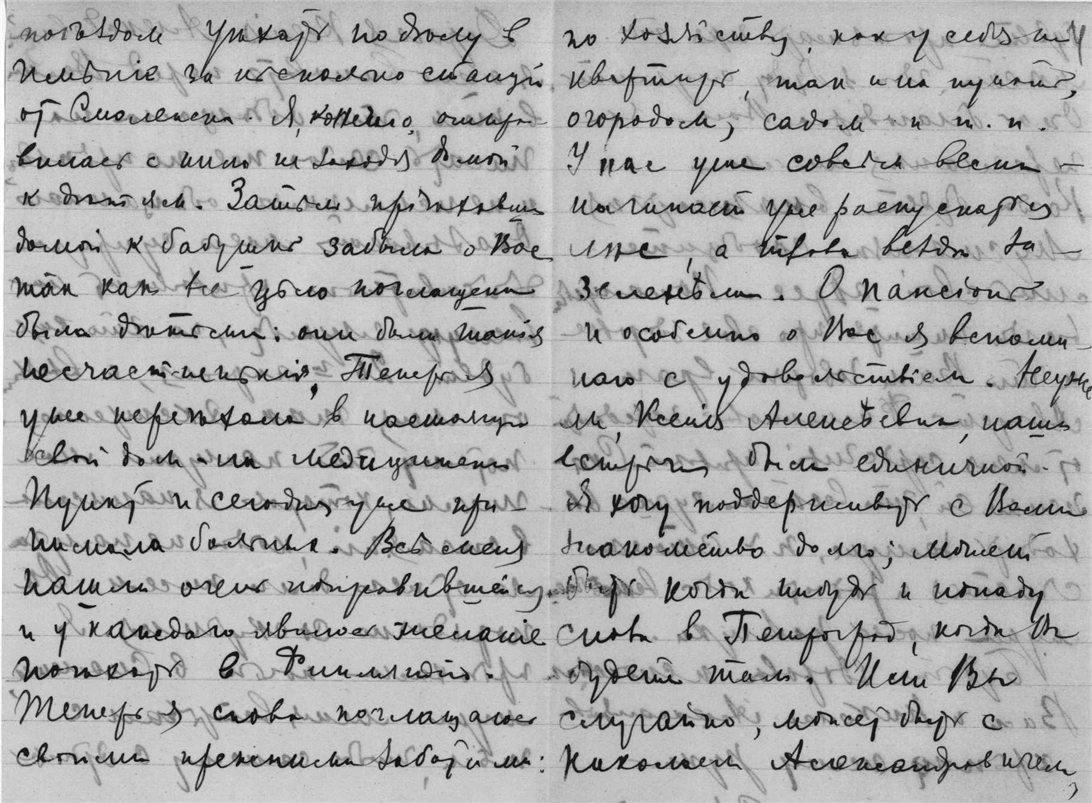 поѣздом уѣхать по дѣлу в
имѣніе за нѣсколько станцій
от Смоленска. Я, конечно, отпра
вилась с ним не заходя домой
к дѣтям. Затѣм пріѣхавши
домой к бабушкѣ забыла о Вас
так как всецѣло поглощена
была дѣтьми: они были такія
несчастненькія. Теперь я
уже переѣхала в настоящій
свой дом – на медицинскій
пункт и сегодня уже при-
нимала больных. Всѣ меня
нашли очень поправившейся
и у каждаго явилось желаніе
поѣхать в Финляндію.
Теперь я снова поглощаюсь
своими прежними заботами:
по хозяйству, как у себя на
квартирѣ, так и на пунктѣ,
огородом, садом и т. п.
У нас уже совсѣм весна –
начинает уже распускаться
лѣс, а трава вездѣ за-
зеленѣла. О пансіонѣ
и особенно о Вас я вспоми-
наю с удовольствіем. Неуже
ли, Ксенія Алексѣевна, наша
встрѣча была единичной.
Я хочу поддерживать с Вами
знакомство долго; может
быть когда нибудь и попаду
снова в Петроград, когда Вы
будете там. Или Вы
случайно, может быть с
Николаем Александровичем,